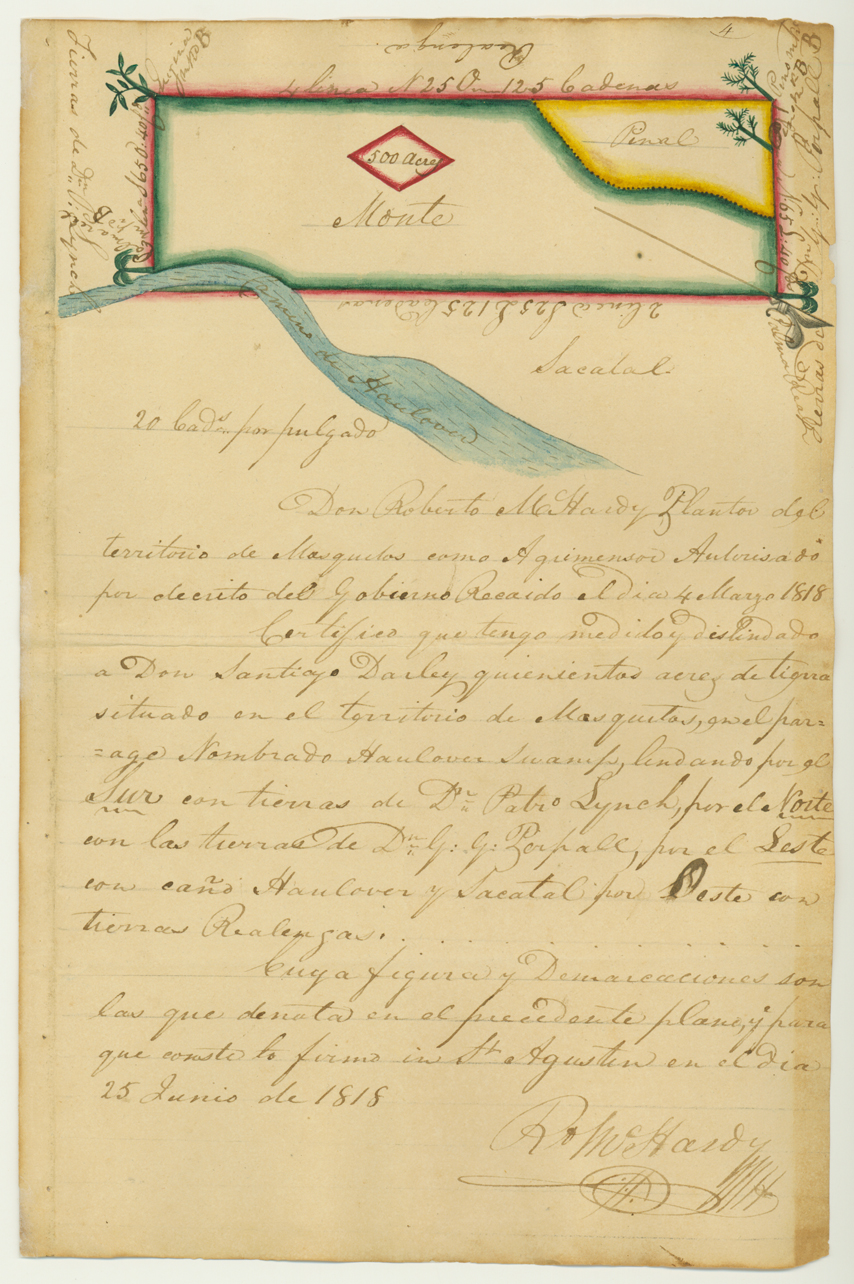 4
Realenga.
4 linea N 25 O 125 Cadenas
Tierras de Dn. P. Lynch
500 Acres
Pinal
Monte
2 linea S 25 E 125 Cadenas
Camino de Haulover
Sacatal.
20 Cads. por pulgado
Don Roberto McHardy Plantor del
territorio de Mosquitos como Agrimensor Autorisado
por decrito del Gobierno Recaido el dia 4 Marzo 1818
Certifico que tengo medido y deslindado
a Don Santiago Darley quienientos acres de tierra
situado en el territorio de Mosquitos, en el par=
=age Nombrado Haulover Swamp, lindando por el
Sur con tierras de Dn. Patro Lynch, por el Norte
con las tierras de Dn. G: G: Perpall, por el Leste
con caño Haulover y Sacatal por Oeste con
tierras Realengas.
Cuya figura y Demarcaciones son
las que denota en el precedente plano, y para
que conste lo firmo in St Agustin en el dia
25 Junio de 1818
Rt McHardy